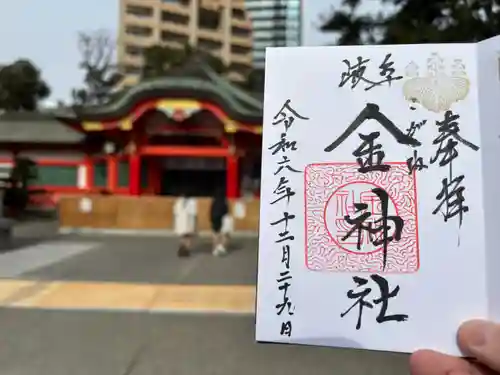 奉拝
岐阜
こがね
金神社
令和六年十二月二十九日